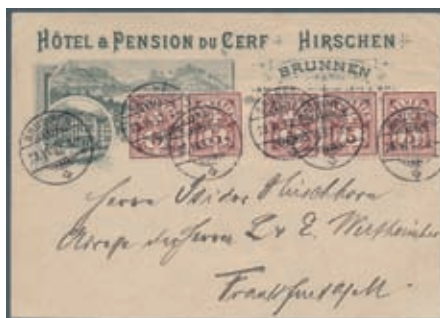 HÔTEL & PENSION DU CERF HIRSCHEN
BRUNNEN
5 5 5
Herrn Isidor Hirschhorn
Adresse des Herrn Dr E. Wertheimber
Frankfurt a/M.